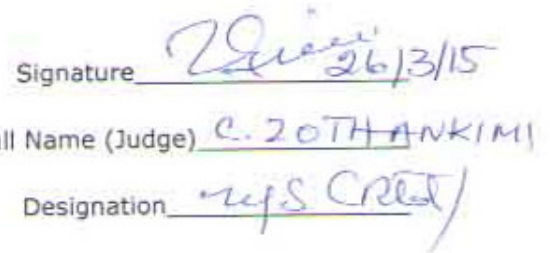 Signature 26/3/15
ll Name (Judge) C. ZOTHANKIMI
Designation